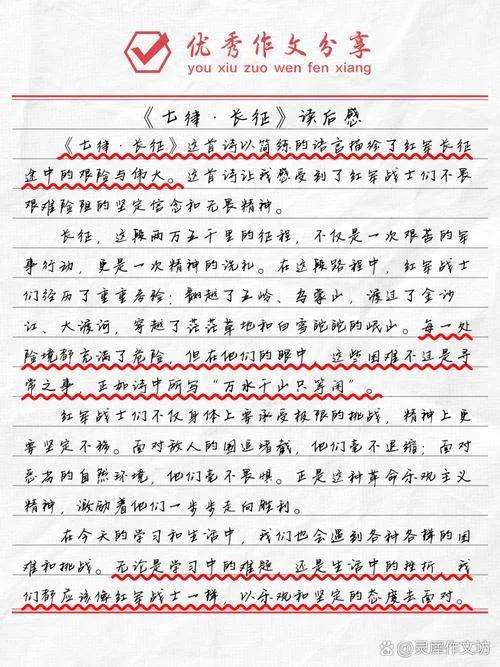 优秀作文分享
you xiu zuo wen fen xiang
《七律·长征》读后感
《七律·长征》这首诗以简练的语言描绘了红军长征
途中的艰险与伟大。这首诗让我感受到了红军战士们不畏
艰难险阻的坚定信念和无畏精神。
长征，这段两万五千里的征程，不仅是一次艰苦的军
事行动，更是一次精神的洗礼。在这段路程中，红军战士
们经历了重重危险：翻越了五岭、乌蒙山，渡过了金沙
江、大渡河，穿越了茫茫草地和白雪皑皑的岷山。每一处
险境都充满了危险，但在他们的眼中，这些困难不过是寻
常之事，正如诗中所写“万水千山只等闲”。
红军战士们不仅身体上要承受极限的挑战，精神上更
要坚定不移。面对敌人的围追堵截，他们毫不退缩；面对
恶劣的自然环境，他们毫不畏惧。正是这种革命乐观主义
精神，激励着他们一步步走向胜利。
在今天的学习和生活中，我们也会遇到各种各样的困
难和挑战。无论是学习中的难题，还是生活中的挫折，我
们都应该像红军战士一样，以乐观和坚定的态度去面对。
灵犀作文坊